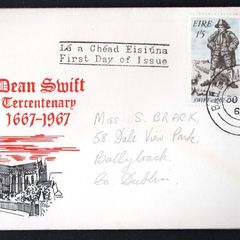 Lá a Chéad Eisiúna
First Day of Issue
ÉIRE
1/5
Dean Swift
Tercentenary
1667-1967
Miss S. BRACK,
58 Dale View Park,
Ballybrack,
Co. Dublin.
30
6